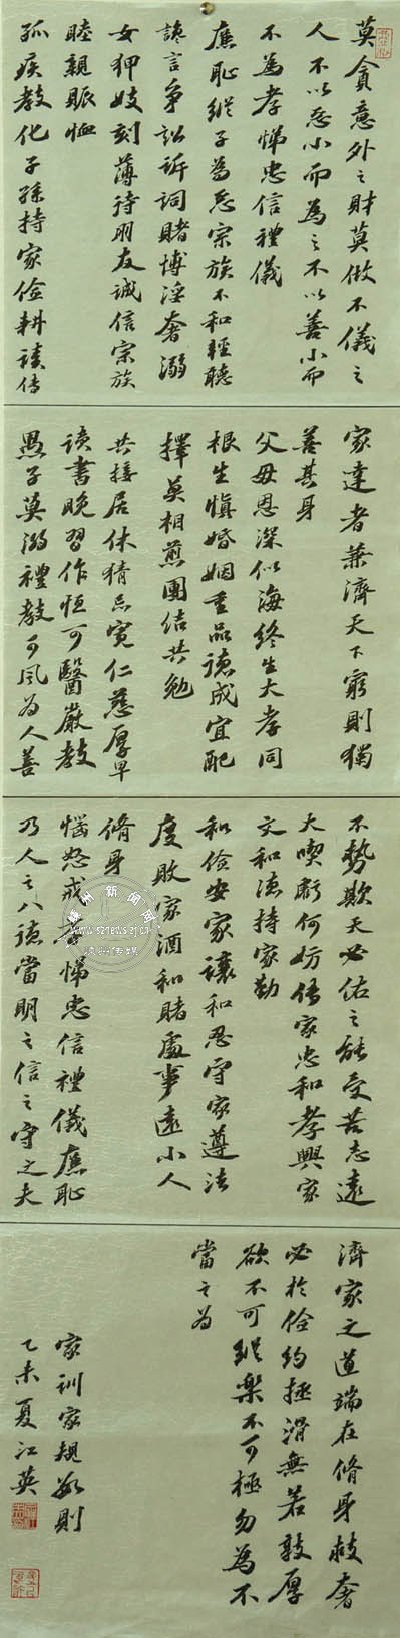 莫貪意外之財莫做不儀之
人不以惡小而為之不以善小而
不為孝悌忠信禮儀
廉恥縱子為惡宗族不和輕聽
讒言爭訟訴詞賭博淫奢溺
女狎妓刻薄待朋友誠信宗族
睦親賑恤
孤疾教化子孫持家儉耕讀傳
家達者兼濟天下窮則獨
善其身
父母恩深似海終生大孝同
根生慎婚姻重品德成宜配
擇莫相煎團結共勉
共接居休猜忌寬仁慈厚早
讀書晚習作恒可醫嚴教
愚子莫溺禮教可風為人善
不勢欺天必佑之能受苦志遠
大喫虧何妨傳家忠和孝興家
文和德持家勤
和儉安家讓和忍守家遵法
度敗家酒和賭處事遠小人
脩身
惱怒戒孝悌忠信禮儀廉恥
乃人之八德當明之信之守之夫
濟家之道端在脩身救奢
必於儉約拯滑無若敦厚
欲不可縱樂不可極勿為不
當之為
家訓家規數則
乙未夏江英
嵊州新聞網
www.sznews.zj.cn